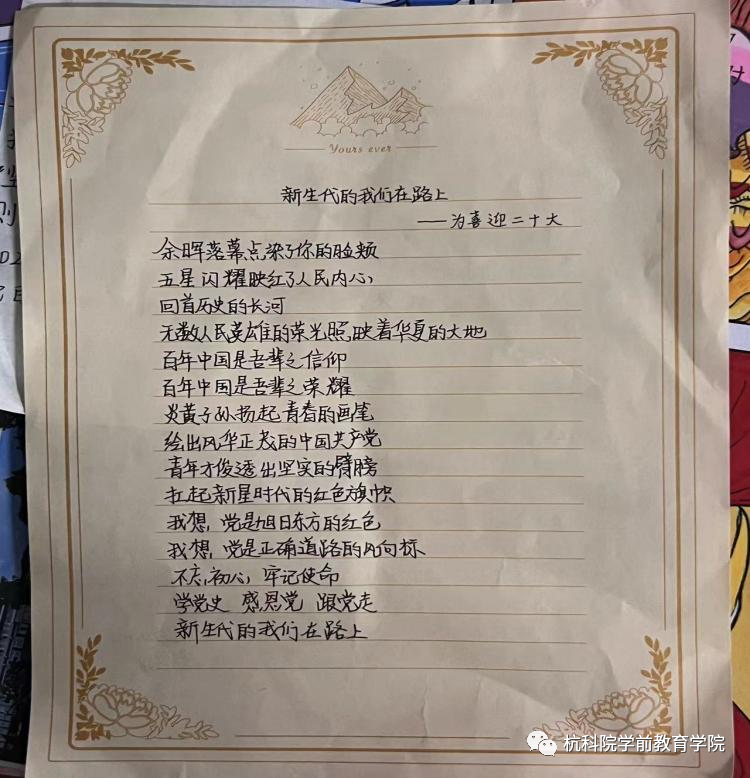 Yours ever
新生代的我们在路上
——为喜迎二十大
余晖落幕点染了你的脸颊
五星闪耀映红了人民内心
回首历史的长河
无数人民英雄的荣光照映着华夏的大地
百年中国是吾辈之信仰
百年中国是吾辈之荣耀
炎黄子孙扬起青春的画笔
绘出风华正茂的中国共产党
青年才俊透出坚实的臂膀
扛起新星时代的红色旗帜
我想,党是旭日东方的红色
我想,党是正确道路的风向标
不忘初心,牢记使命
学党史 感恩党 跟党走
新生代的我们在路上
杭科院学前教育学院